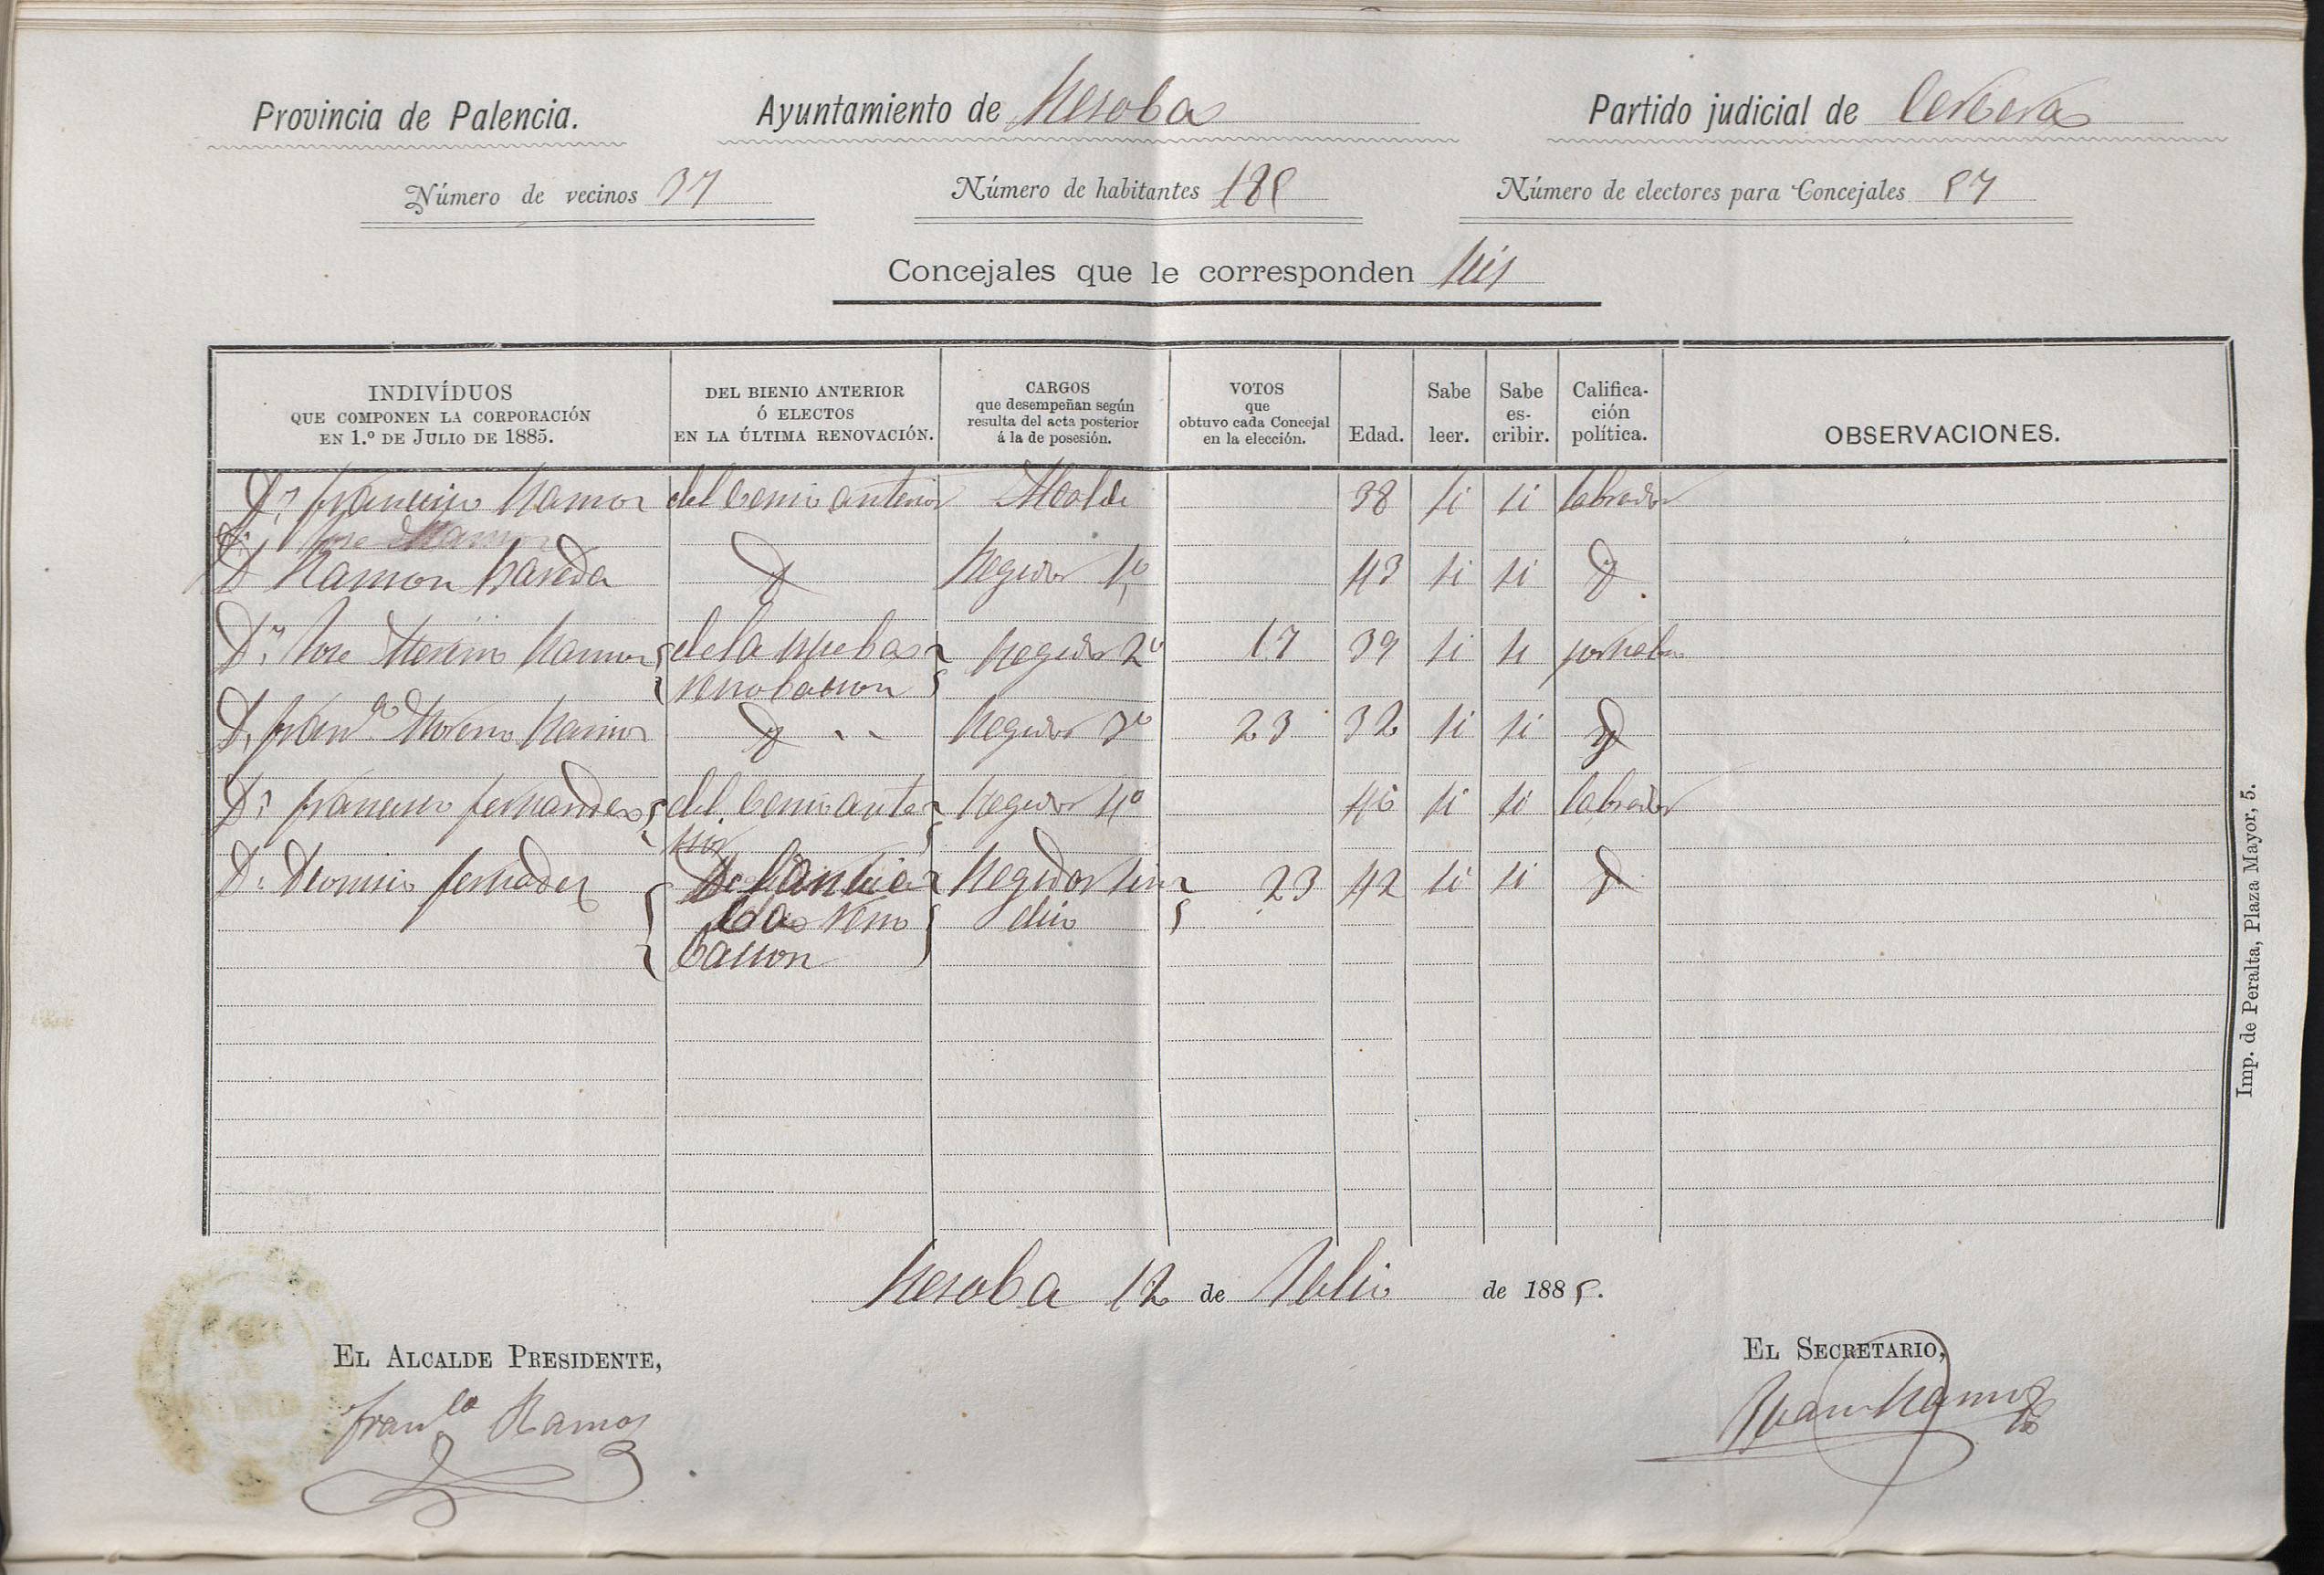 Provincia de Palencia. Ayuntamiento de Resoba Partido judicial de Cerbera
Número de vecinos 37 Número de habitantes 185 Número de electores para Concejales 57
Concejales que le corresponden seis
INDIVÍDUOS
QUE COMPONEN LA CORPORACIÓN
EN 1.º DE JULIO DE 1885.
DEL BIENIO ANTERIOR
Ó ELECTOS
EN LA ÚLTIMA RENOVACIÓN.
CARGOS
que desempeñan según
resulta del acta posterior
á la de posesión.
VOTOS
que
obtuvo cada Concejal
en la elección.
Edad.
Sabe
leer.
Sabe
es-
cribir.
Califica-
ción
política.
OBSERVACIONES.
Dn francisco Ramos del benio anterior Alcalde 38 si si labrador
D Ramon Pareda Regidor 1º 43 si si
Dn Jose Merino Ramos de la nueba Regidor 2º 17 39 si si jornalero
renobacion
D. franco Moreno Ramos Regidor 3º 23 32 si si
Dn francisco fernandez del benio ante Regidor 4º 46 si si labrador
rior
Dn Dionisio fernadez Regidor sin 23 42 si si
reno dico
bacion
Resoba 12 de Julio de 1885.
EL ALCALDE PRESIDENTE,
EL SECRETARIO,
Franco Ramos
Juan Ramos
Imp. de Peralta, Plaza Mayor, 5.